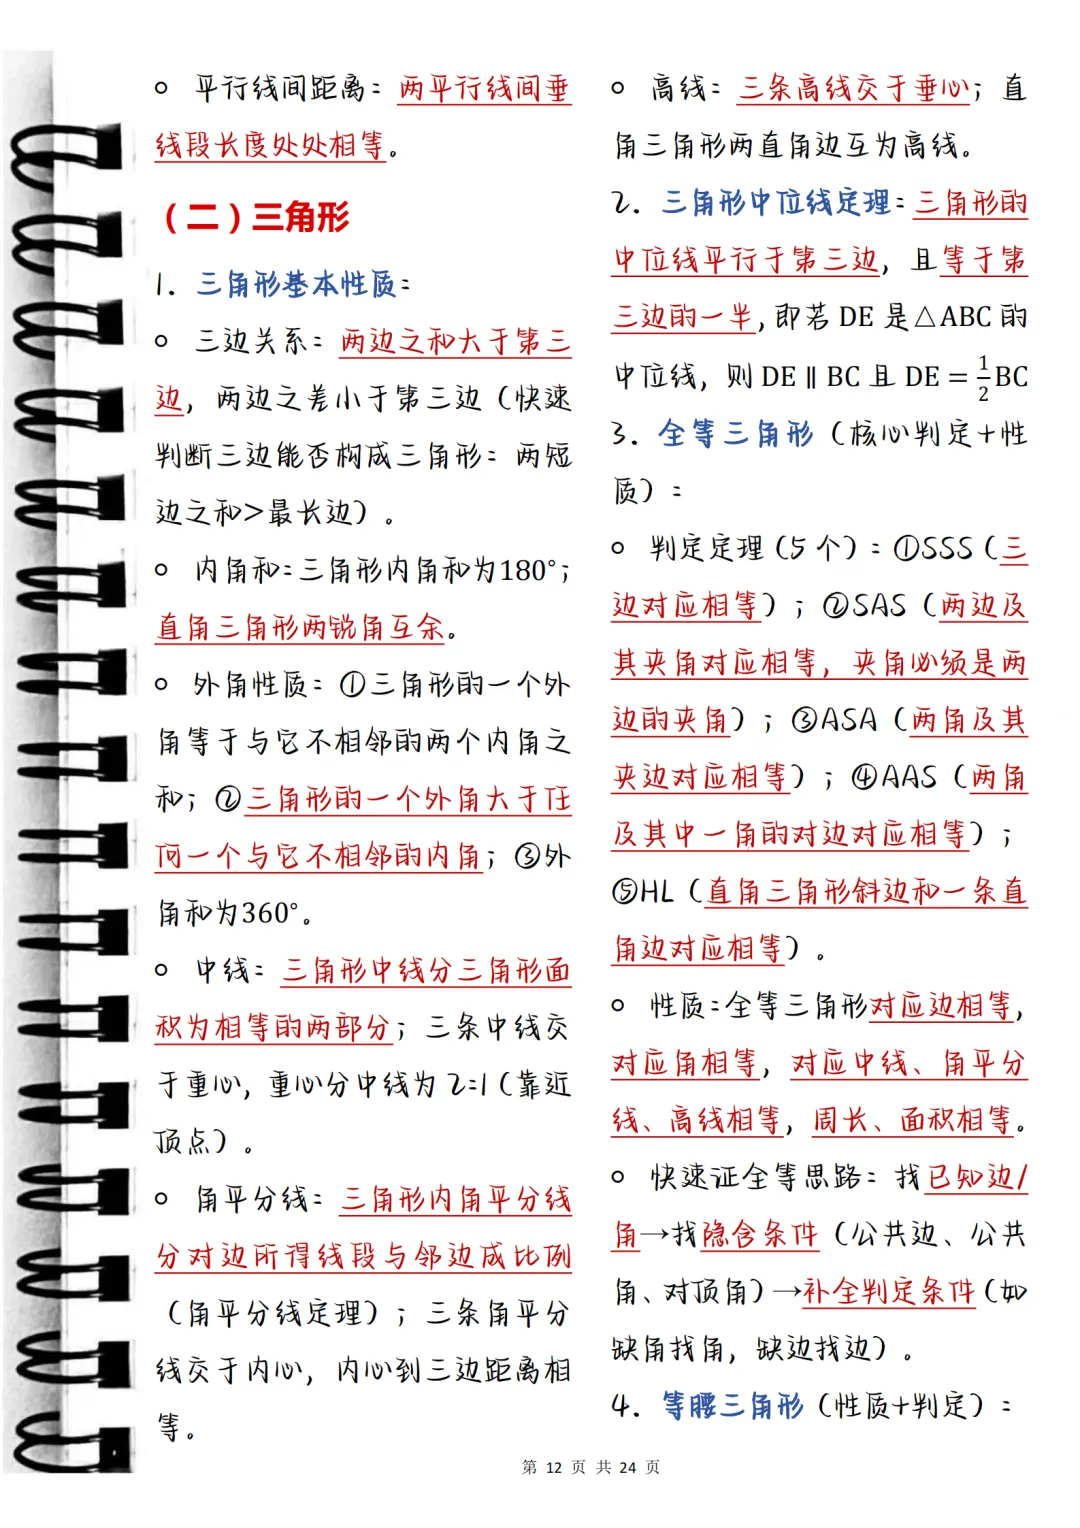 ○ 平行线间距离：两平行线间垂
线段长度处处相等。
（二）三角形
1. 三角形基本性质：
○ 三边关系：两边之和大于第三
边，两边之差小于第三边（快速
判断三边能否构成三角形：两短
边之和>最长边）。
○ 内角和：三角形内角和为180°；
直角三角形两锐角互余。
○ 外角性质：①三角形的一个外
角等于与它不相邻的两个内角之
和；②三角形的一个外角大于任
何一个与它不相邻的内角；③外
角和为360°。
○ 中线：三角形中线分三角形面
积为相等的两部分；三条中线交
于重心，重心分中线为2:1（靠近
顶点）。
○ 角平分线：三角形内角平分线
分对边所得线段与邻边成比例
（角平分线定理）；三条角平分
线交于内心，内心到三边距离相
等。
○ 高线：三条高线交于垂心；直
角三角形两直角边互为高线。
2. 三角形中位线定理：三角形的
中位线平行于第三边，且等于第
三边的一半，即若 DE 是△ABC 的
中位线，则 DE ∥ BC 且 DE = 1/2 BC
3. 全等三角形（核心判定+性
质）：
○ 判定定理（5 个）：①SSS（三
边对应相等）；②SAS（两边及
其夹角对应相等，夹角必须是两
边的夹角）；③ASA（两角及其
夹边对应相等）；④AAS（两角
及其中一角的对边对应相等）；
⑤HL（直角三角形斜边和一条直
角边对应相等）。
○ 性质：全等三角形对应边相等，
对应角相等，对应中线、角平分
线、高线相等，周长、面积相等。
○ 快速证全等思路：找已知边/
角→找隐含条件（公共边、公共
角、对顶角）→补全判定条件（如
缺角找角，缺边找边）。
4. 等腰三角形（性质+判定）：
第 12 页 共 24 页